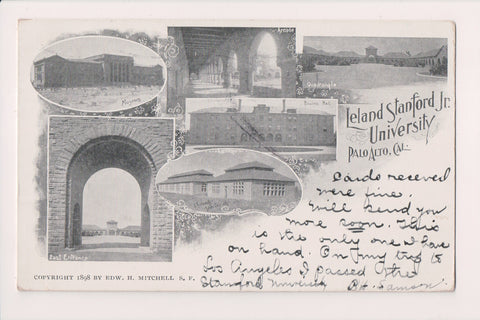 Arcade
Quadrangle
Museum
Encina Hall
East Entrance
Leland Stanford Jr.
University
PALO ALTO, CAL.
Cards received
were fine.
Will send you
more soon. This
is the only one I have
on hand. On my trip to
Los Angeles I passed the
Stanford University
COPYRIGHT 1898 BY EDW. H. MITCHELL S. F.